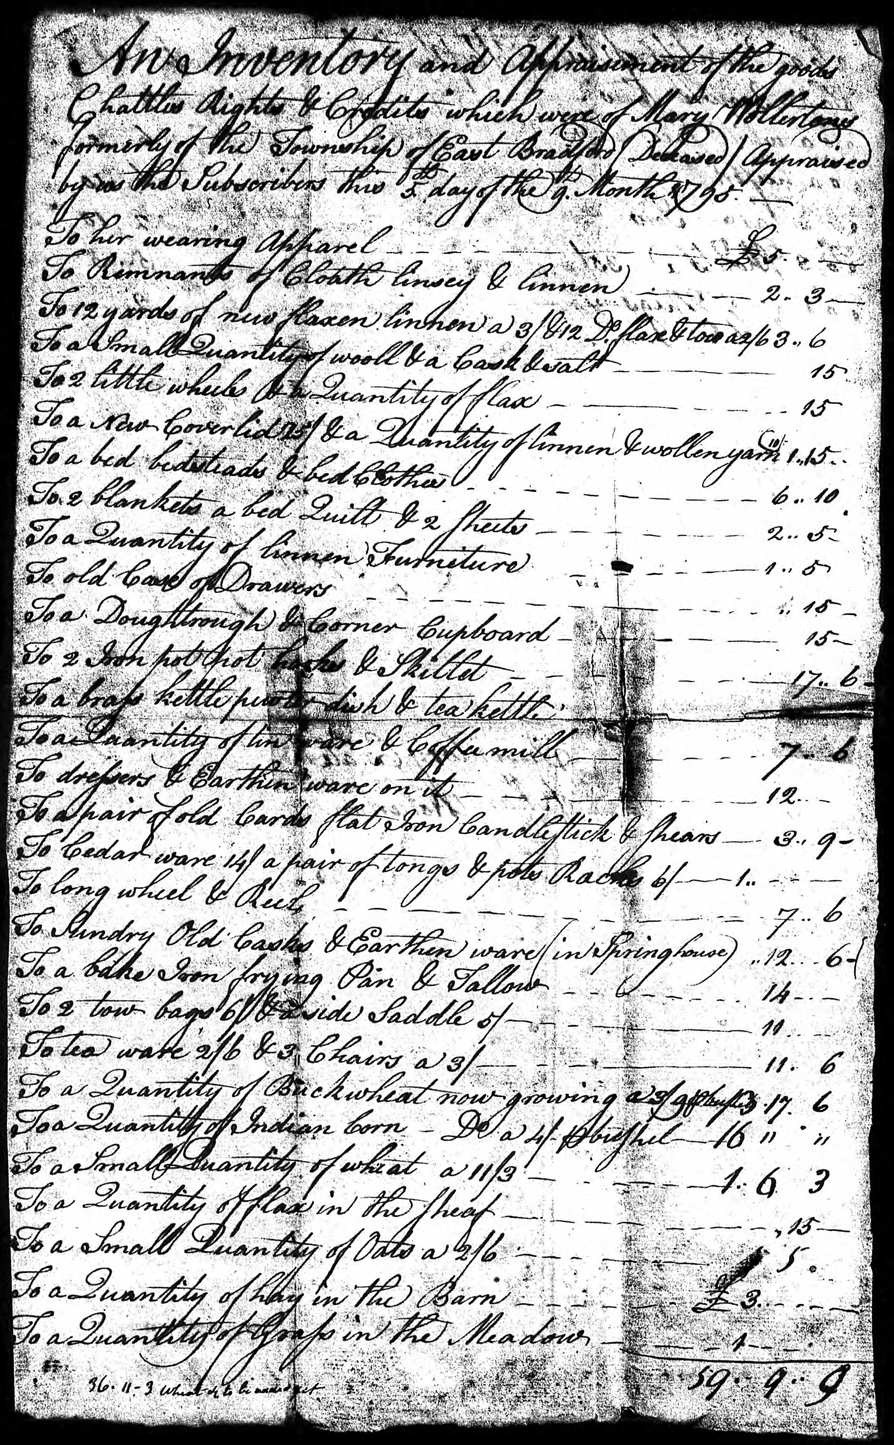 An Inventory and Appraisement of the goods
Chattles Rights & Credits which were of Mary Wollerton
formerly of the Township of East Bradford Deceased Appraised
by us the Subscribers this 5th day of the 9 Month 1795
To her wearing Apparel £ 5
To Remnants of Cloath linsey & linnen 2.. 3
To 12 yards of new flaxen linnen a 3/ & 12 Do flax & tow a 2/6 3.. 6
To a Small Quantity of wooll & a Cask & salt 15
To 2 little wheels & a Quantity of flax 15
To a New Coverlid 25/ & a Quantity of linnen & wollen yarn 1..15..
To a bed bedsteads & bed Clothes 6.. 10
To 2 blankets a bed Quilt & 2 Sheets 2.. 5
To a Quantity of linnen Furniture 1.. 5
To old Case of Drawers .. 15
To a Doughtrough & Corner Cupboard 15
To 2 Iron pot pot hooks & Skillet 17.. 6
To a brass kettle pewter dish & tea kettle
To a Quantity of tin ware & Coffee mill 7.. 6
To dressers & Earthen ware on it 12
To a pair of old Cards flat Iron Candlestick & Shears 3.. 9
To Cedar ware 14/ a pair of tongs & pots Racks 6/ 1..
To long wheel & Reel 7.. 6
To Sundry Old Casks & Earthen ware (in Springhouse) ..12.. 6
To a bake Iron frying Pan & Tallow 14
To 2 tow bags 6/ & a side Saddle 5/ 11
To tea ware 2/6 & 3 Chairs a 3/ 11.. 6
To a Quantity of Buckwheat now growing a 3/9 17.. 6
To a Quantity of Indian Corn - Do a 4/ bushel 16 " "
To a Small Quantity of wheat a 11/3 1.. 6 3
To a Quantity of flax in the Sheaf ..15
To a Small Quantity of Oats a 2/6 5
To a Quantity of hay in the Barn £ 3
To a Quantity of Grass in the Meadow 1
59.. 9.. 9
36-11-3